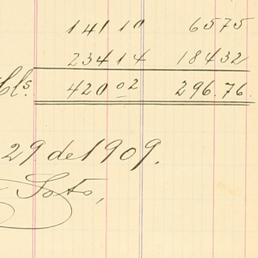 141 10 65 75
234 14 184 32
Cls. 420.02 296.76
29 de 1909.
Soto,